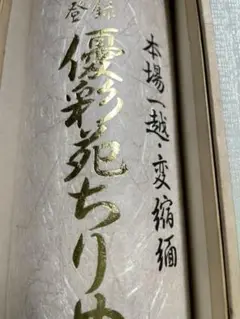 登録
優彩苑ちりめ
本場一越・変縮緬